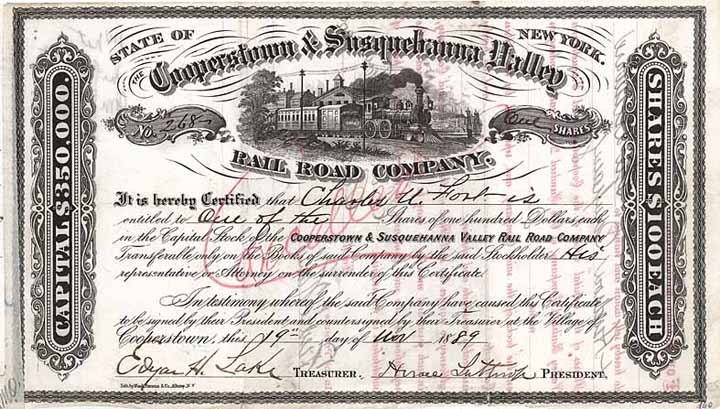 STATE OF NEW YORK.
THE Cooperstown & Susquehanna Valley
No. 268 One SHARES
RAIL ROAD COMPANY.
CAPITAL $350,000.
SHARES $100 EACH
It is hereby Certified that Charles W. is
entitled to One of the Shares of one hundred Dollars each
in the Capital Stock of the COOPERSTOWN & SUSQUEHANNA VALLEY RAIL ROAD COMPANY
Transferable only on the Books of said Company by the said Stockholder His
representative or Attorney on the surrender of this Certificate.
In testimony whereof the said Company have caused this Certificate
to be signed by their President and countersigned by their Treasurer at the Village of
Cooperstown, this 19th day of Nov 1889
Edgar H. Lake TREASURER. PRESIDENT.
Cancelled